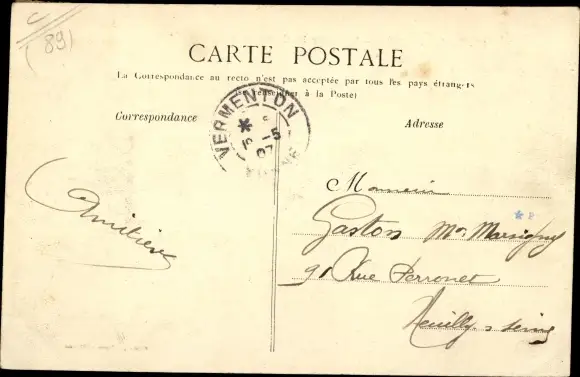 (89)
CARTE POSTALE
La Correspondance au recto n'est pas acceptée par tous les pays étrangers
(se renseigner à la Poste)
Correspondance
Adresse
VERMENTON
-5
07
Monsieur
Gaston
* 8
91 Rue Perronet
Neuilly s Seine